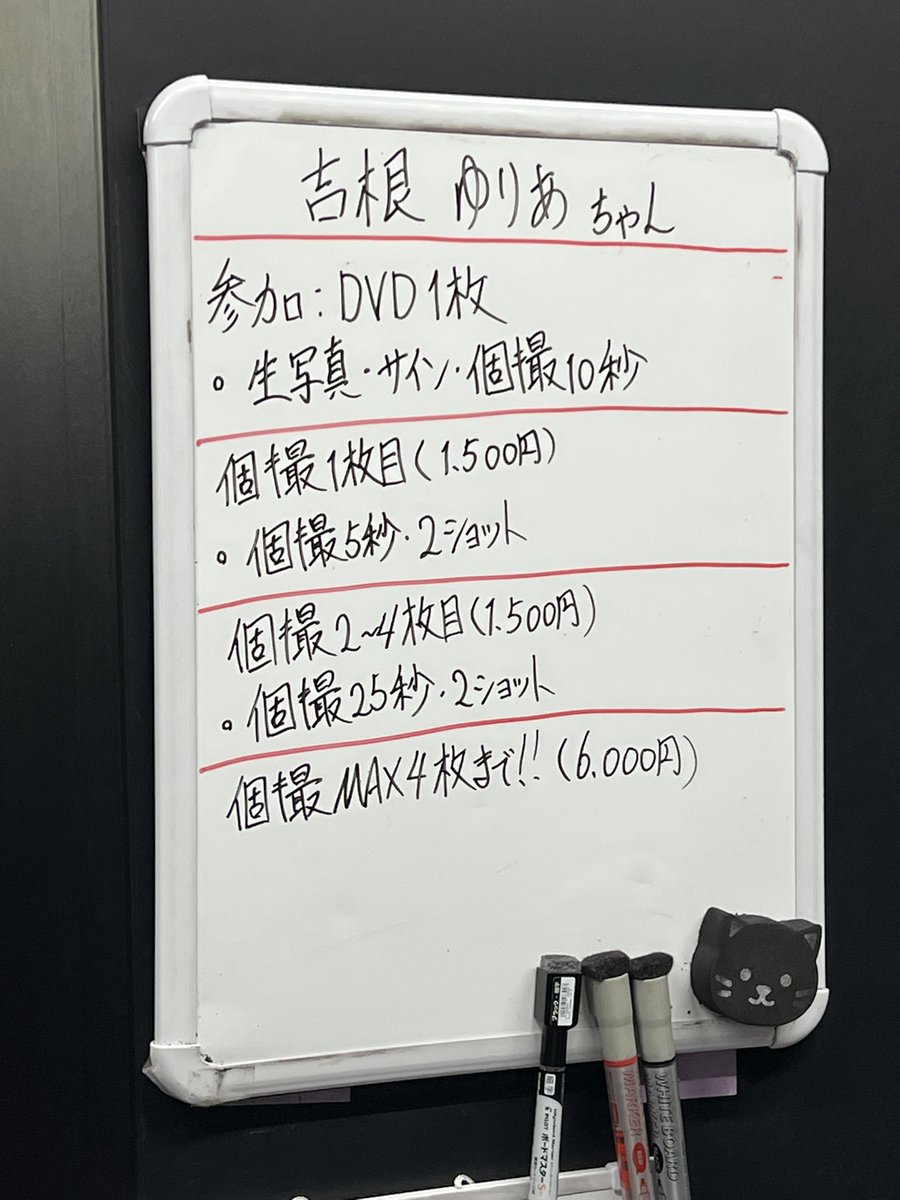 吉根 ゆりあ ちゃん
参加:DVD1枚
。生写真・サイン・個撮10秒
個撮1枚目(1.500円)
。個撮5秒・2ショット
個撮2~4枚目(1.500円)
。個撮25秒・2ショット
個撮MAX4枚まで!!(6.000円)
細字
PILOT ボードマスターS
MARKER
WHITEBOARD